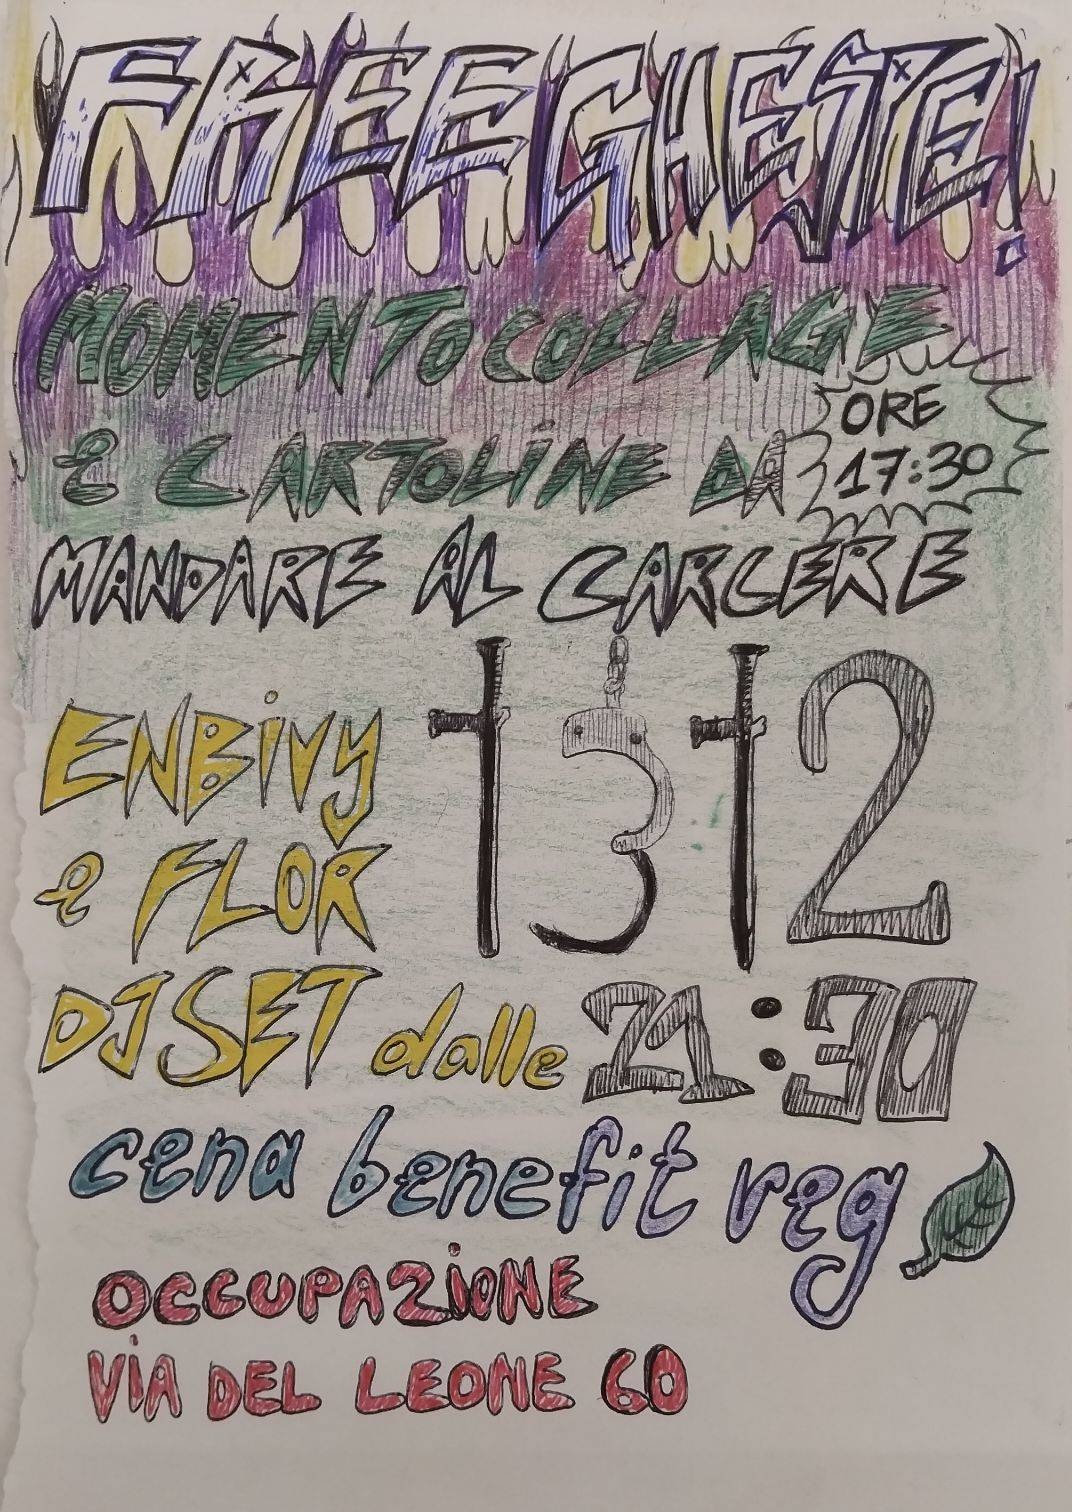 FREE GHESPE!
MOMENTO COLLAGE
& CARTOLINE DA
ORE
17:30
MANDARE AL CARCERE
1312
ENBiVY
& FLOR
DJSET dalle 21:30
cena benefit veg
OCCUPAZiONE
ViA DEL LEONE 60